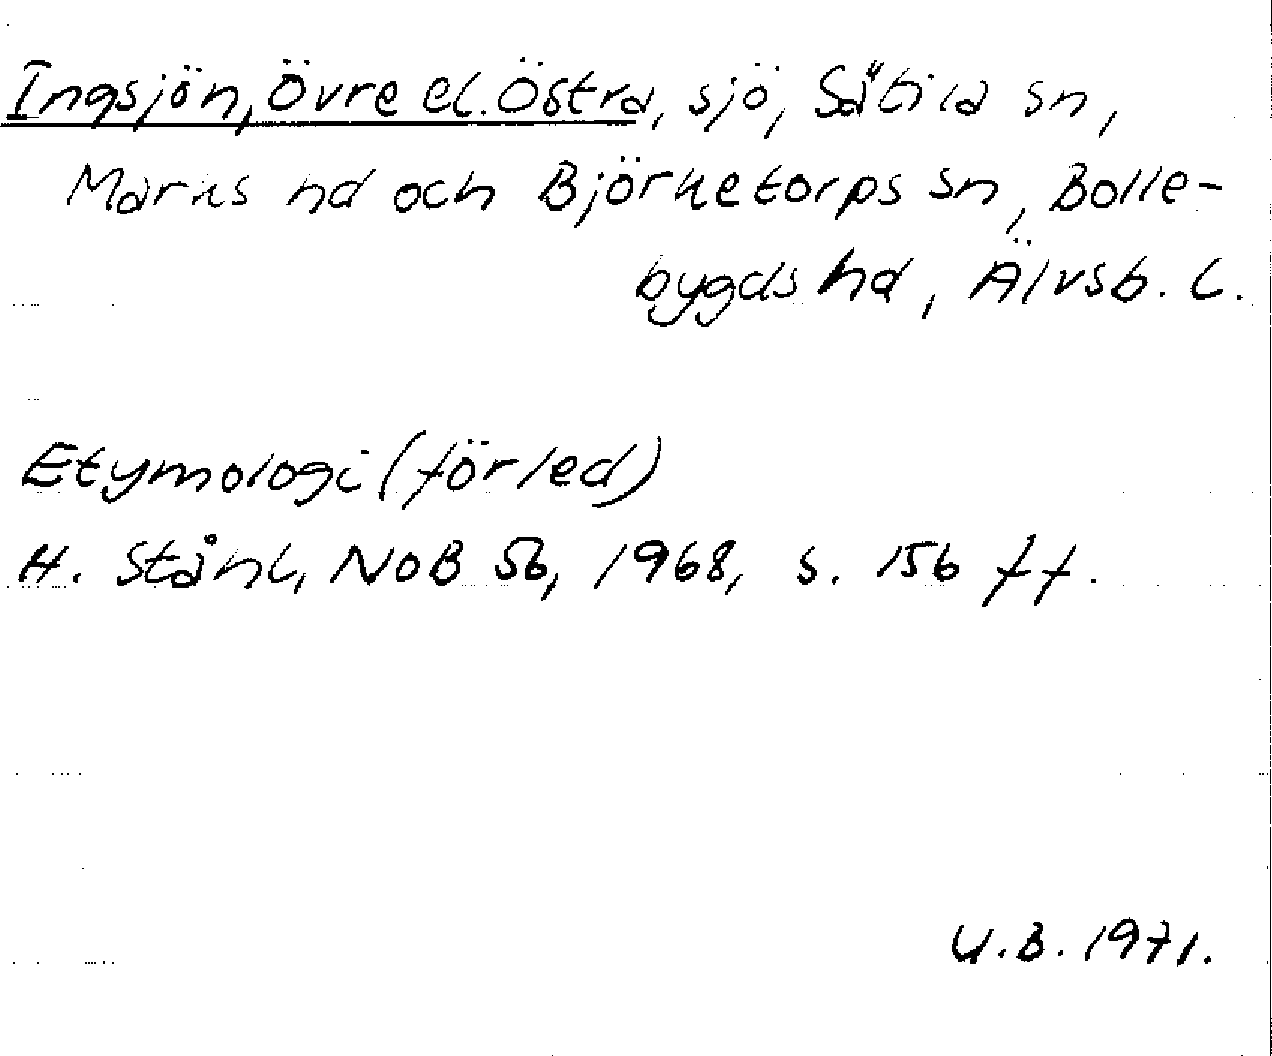 Ingsjön, Övre el. Östra, sjö, Sätila sn,
Marks hd och Björketorps sn, Bolle-
bygds hd, Älvsb. l.
Etymologi (förled)
H. Ståhl, NoB 56, 1968, s. 156 ff.
U.B. 1971.